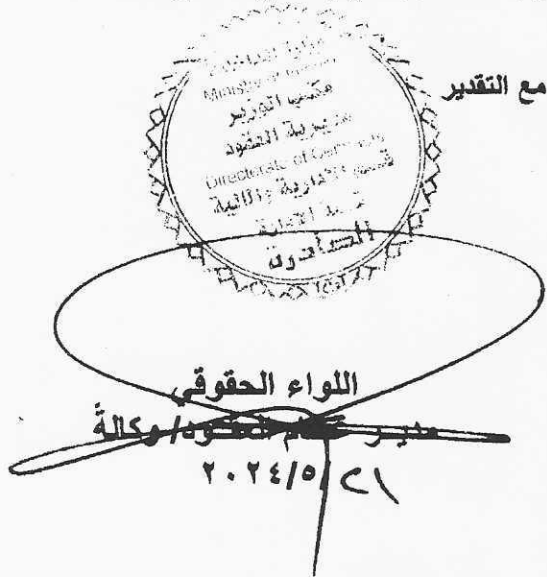 مع التقدير
مكتب الوزير
مديرية العقود
Directorate of
قسم الادارية والمالية
الصادرة
اللواء الحقوقي
مدير عام العقود/وكالةً
٢١/٥/٢٠٢٤